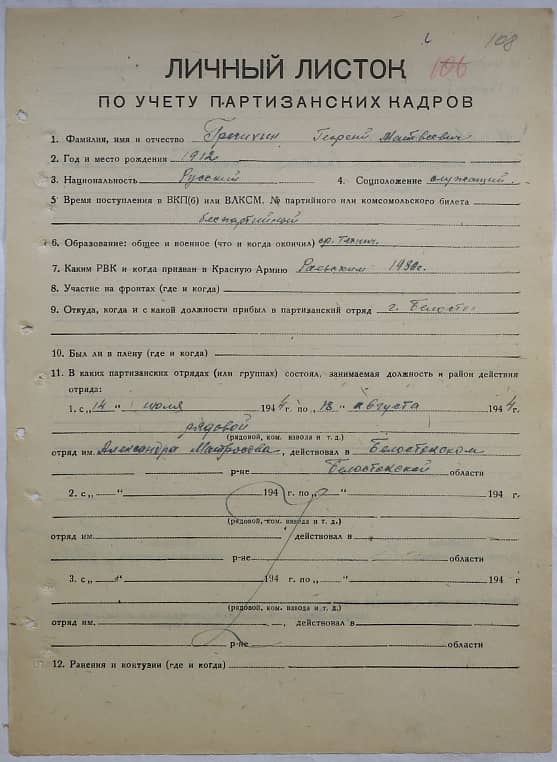 108
106
ЛИЧНЫЙ ЛИСТОК
ПО УЧЕТУ ПАРТИЗАНСКИХ КАДРОВ
1. Фамилия, имя и отчество Георгий Матвеевич
2. Год и место рождения 1912
3. Национальность Русский 4. Соцположение служащий.
5. Время поступления в ВКП(б) или ВЛКСМ. № партийного или комсомольского билета
беспартийный
6. Образование: общее и военное (что и когда окончил) ср. технич.
7. Каким РВК и когда призван в Красную Армию
8. Участие на фронтах (где и когда)
9. Откуда, когда и с какой должности прибыл в партизанский отряд г. Белосток
10. Был ли в плену (где и когда)
11. В каких партизанских отрядах (или группах) состоял, занимаемая должность и район действия
отряда:
1. с „14 " июля 1944 г. по „18 " августа 1944 г.
рядовой
(рядовой, ком. взвода и т. д.)
отряд им. Александра Матросова, действовал в Белостокском
р-не Белостокской области
2. с „ " 194 г. по „ " 194 г
(рядовой, ком. взвода и т. д.)
отряд им. действовал в
р-не области
3. с „ " 194 г. по „ " 194 г
(рядовой, ком. взвода и т. д.)
отряд им. , действовал в
р-не области
12. Ранения и контузии (где и когда)